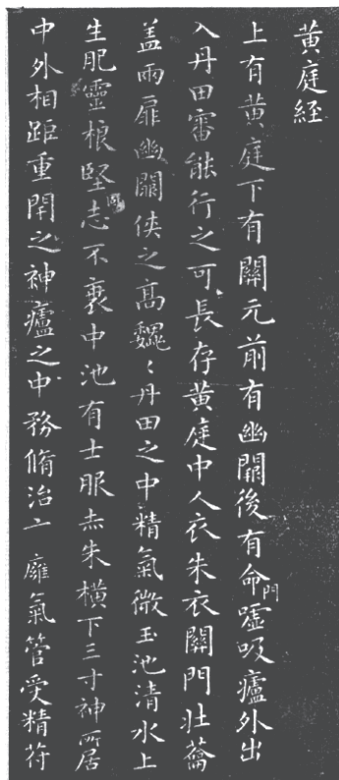 黄庭経
上有黄庭下有關元前有幽闕後有命門嘘吸廬外出
入丹田審能行之可長存黄庭中人衣朱衣關門壮籥
盖兩扉幽闕侠之髙巍〻丹田之中精氣微玉池清水上
生肥靈根堅志不衰中池有士服赤朱横下三寸神所居
中外相距重閇之神廬之中務脩治亠廱氣管受精符